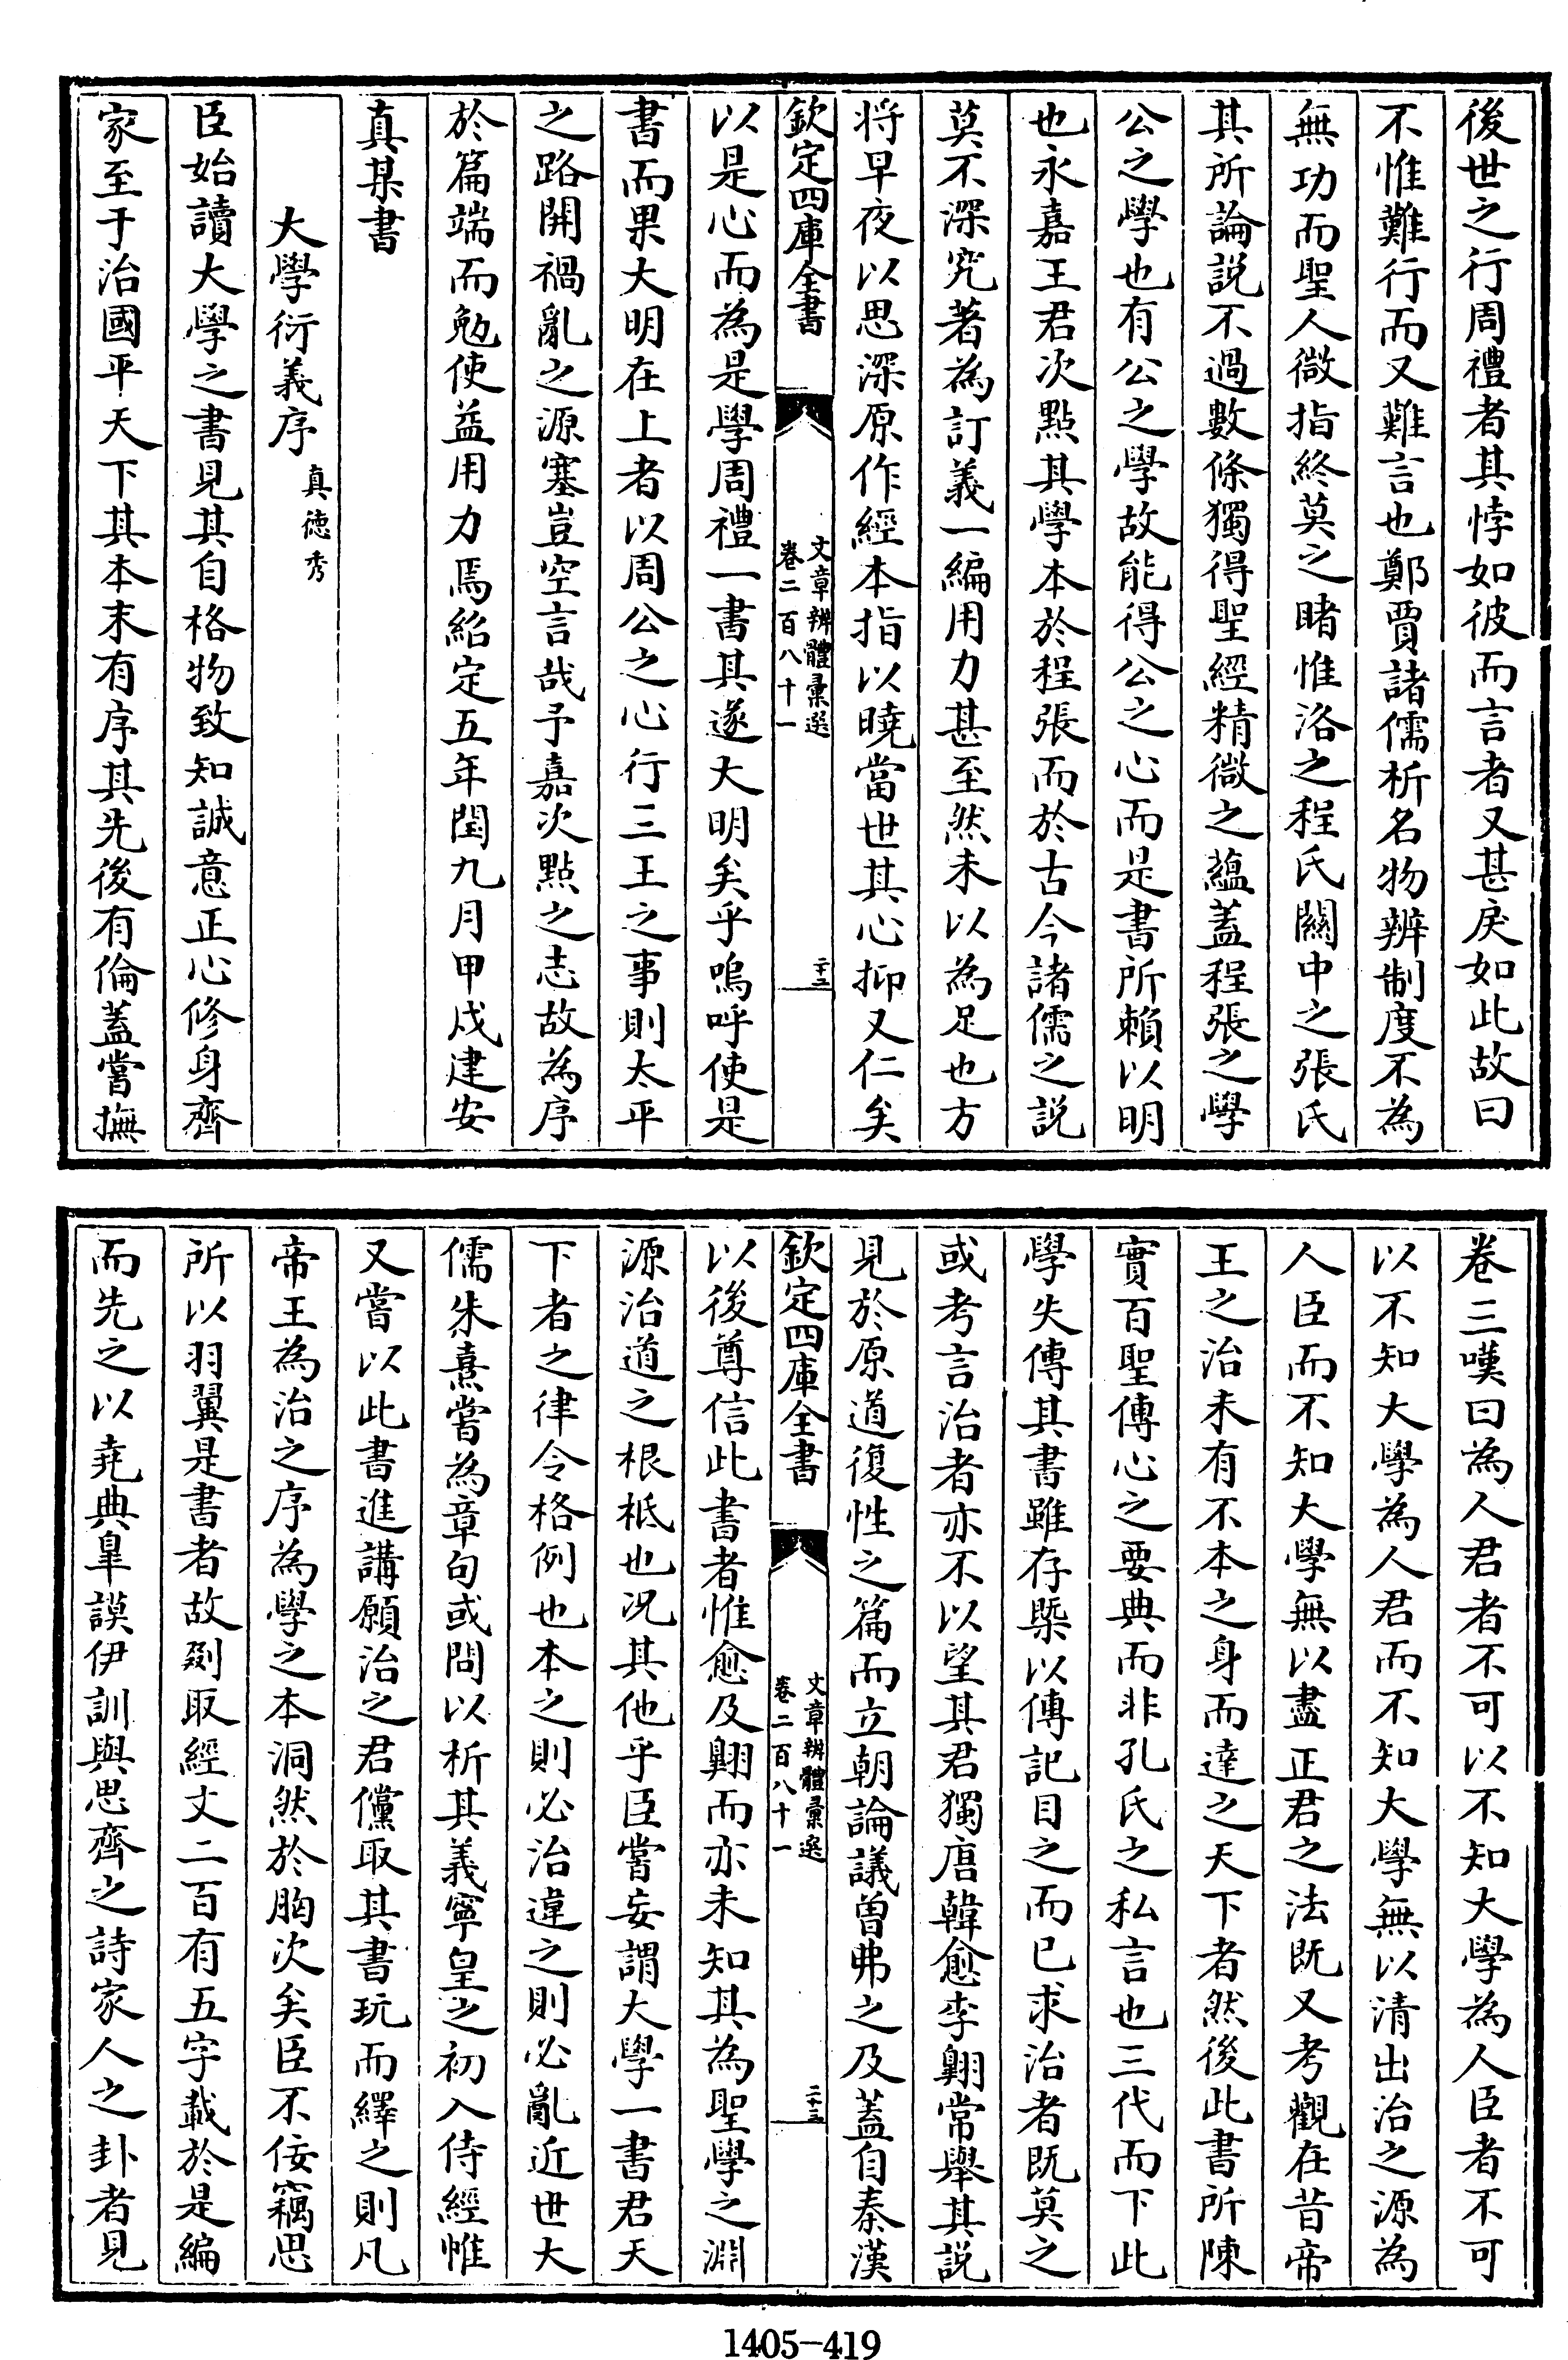 後世之行周禮者其悖如彼而言者又甚戾如此故曰
不惟難行而又難言也鄭賈諸儒析名物辨制度不為
無功而聖人微指終莫之睹惟洛之程氏關中之張氏
其所論說不過數條獨得聖經精微之蘊蓋程張之學
公之學也有公之學故能得公之心而是書所賴以明
也永嘉王君次點其學本於程張而於古今諸儒之說
莫不深究著為訂義一編用力甚至然未以為足也方
将早夜以思深原作經本指以曉當世其心抑又仁矣
欽定四庫全書
文章辨體彙選
卷二百八十一
二十二
以是心而為是學周禮一書其遂大明矣乎嗚呼使是
書而果大明在上者以周公之心行三王之事則太平
之路開禍亂之源塞豈空言哉予嘉次點之志故為序
於篇端而勉使益用力焉紹定五年閏九月甲戌建安
真某書
大學衍義序
真徳秀
臣始讀大學之書見其自格物致知誠意正心修身齊
家至于治國平天下其本末有序其先後有倫蓋嘗撫
卷三嘆曰為人君者不可以不知大學為人臣者不可
以不知大學為人君而不知大學無以清出治之源為
人臣而不知大學無以盡正君之法既又考觀在昔帝
王之治未有不本之身而達之天下者然後此書所陳
實百聖傳心之要典而非孔氏之私言也三代而下此
學失傳其書雖存槩以傳記目之而已求治者既莫之
或考言治者亦不以望其君獨唐韓愈李翺常舉其說
見於原道復性之篇而立朝論議曽弗之及蓋自秦漢
欽定四庫全書
文章辨體彙選
卷二百八十一
二十三
以後尊信此書者惟愈及翺而亦未知其為聖學之淵
源治道之根柢也况其他乎臣嘗妄謂大學一書君天
下者之律令格例也本之則必治違之則必亂近世大
儒朱熹嘗為章句或問以析其義寧皇之初入侍經惟
又嘗以此書進講願治之君儻取其書玩而繹之則凡
帝王為治之序為學之本洞然於胸次矣臣不佞竊思
所以羽翼是書者故剟取經文二百有五字載於是編
而先之以堯典皐謨伊訓與思齊之詩家人之卦者見
1405-419